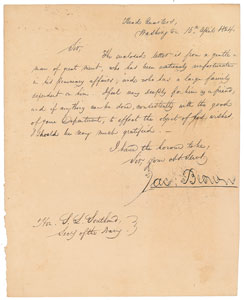 Head Quarters,
Washington 15th April 1824.
Sir,
The enclosed letter is from a gentle-
man of great merit, who has been extremely unfortunate
in his pecuniary affairs, and who has a large family
dependent on him. I feel very deeply for him & friend,
and if anything can be done, consistently with the good
of your Department, to effect the object of his wishes
I should be very much gratified.
I have the honor to be,
Sir, your obt Servt,
Jac: Brown
Hon. S. L. Southard,
Secy of the Navy.